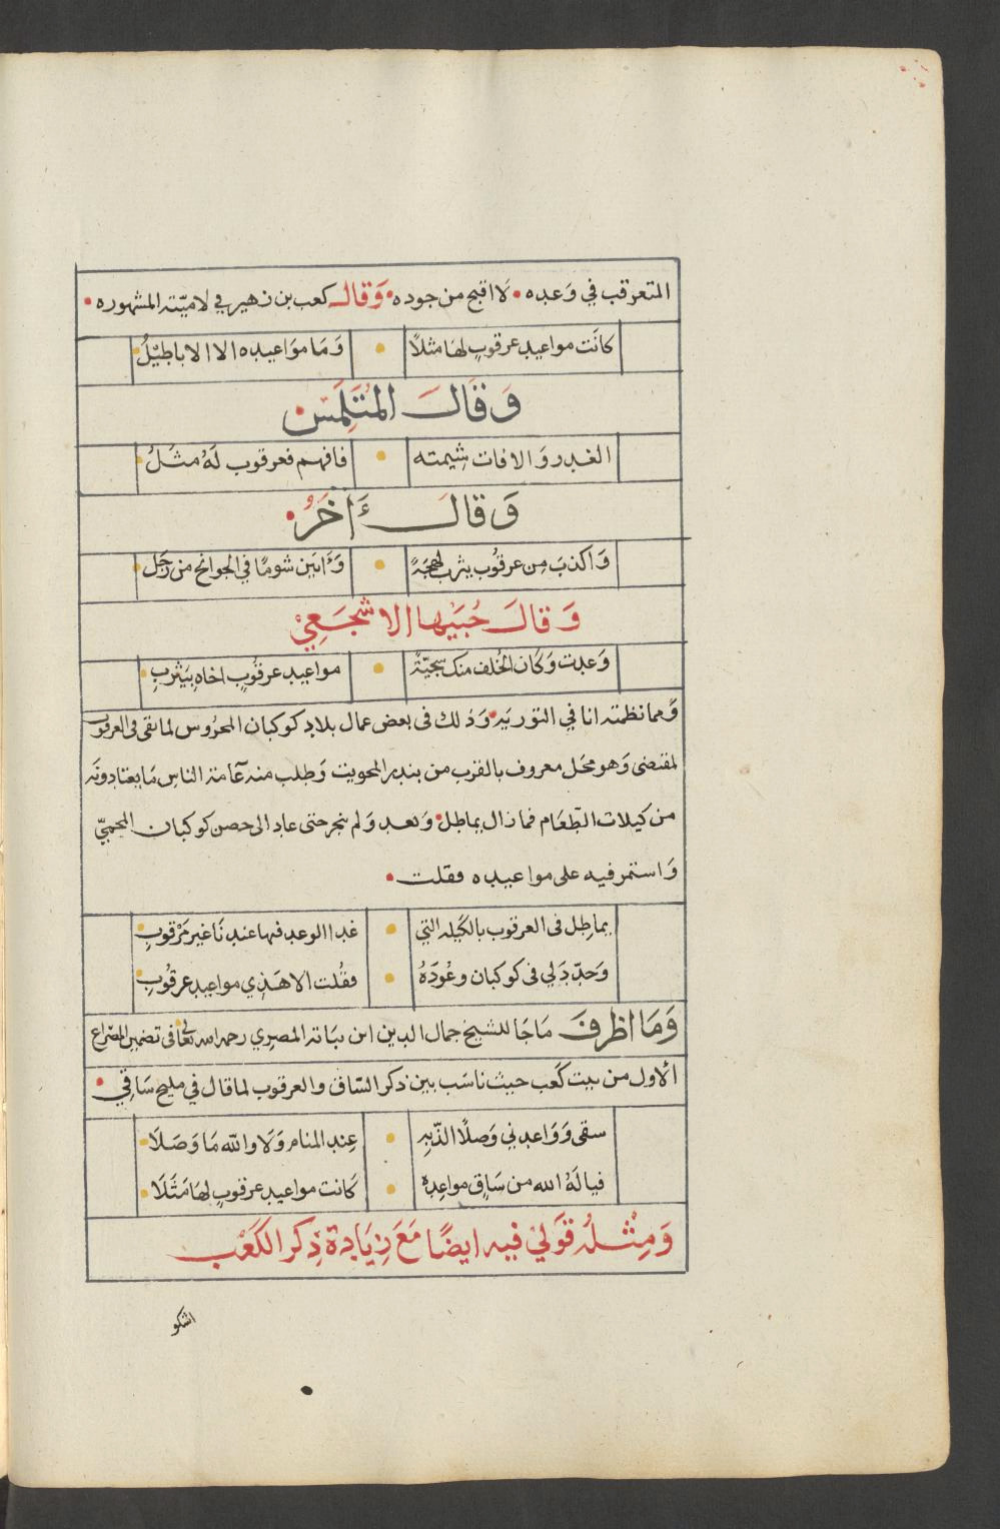 المتعرقب في وَعده • لَا اقبح من جوده • وَقالـ كعب بن زهير في لاميّته المشهوره •
كانَت مواعيد عرقوبٍ لهَا مثلاً • وَمَا موَاعيده الا الاباطيْلُ
وَقَالَ المُتَلَمِّس
الغدر وَالافات شِيمته • فافهم فعرقوب لَهُ مثَلُ
وَقالَ ءَاخَرُ •
وَاكذبَ مِن عرقُوب يثرب لهجَةً • وَءَابيَن شومًا في الجوانح من زحَل
وَقالَ جُبَيهَا الاشجَعِيْ
وَعدت وَكَان الخُلف منك سجيّةً • مواعيد عرقُوبٍ اخاه بيَثربِ
وَمما نظمته انا في التوريَه • وَذلك فى بعض عمال بلاد كوكبان المحرُوس لما بقى فى العرقوب
لمقتضى وَهو محَل معروف بالقرب من بندر المحويت وَطلب منه عَامة الناسِ مَا يعتادونَه
من كيلات الطّعَام فما زال يماطل • وَيعد وَلم ينجز حتى عاد الى حصن كوكبان المحميّ
وَاستمر فيه على مواعيده فقلت •
يماطِل فى العرقوب بالكَيله التي • غدا الوعد فيها عندنَا غير مَرْقوبِ
وَحدّدَ لي فى كوكبان وعُودَهُ • فقُلت الا هَذِي مواعيد عرقُوبِ
وَمَا اظرفَ مَا جَا للشيخ جمال الدين ابن نبَاته المصرِي رحمه الله تعالى فى تضمين المصراع
الاول من بيت كَعب حيث ناسَب بين ذكر السّاق والعرقوب لما قال في مليح سَاقي •
سقى وَوَاعدني وَصلًا الذّبهِ • عِند المنام وَلَا واللّه مَا وَصَلَا
فيا لَهُ الله من سَاقٍ مواعِده • كَانت مواعيد عرقوبٍ لهَا مَثَلَا
وَمِثْلُه قَولِيْ فيه ايضًا مَعَ زِيَادة ذِكر الكَعْب
اشكو